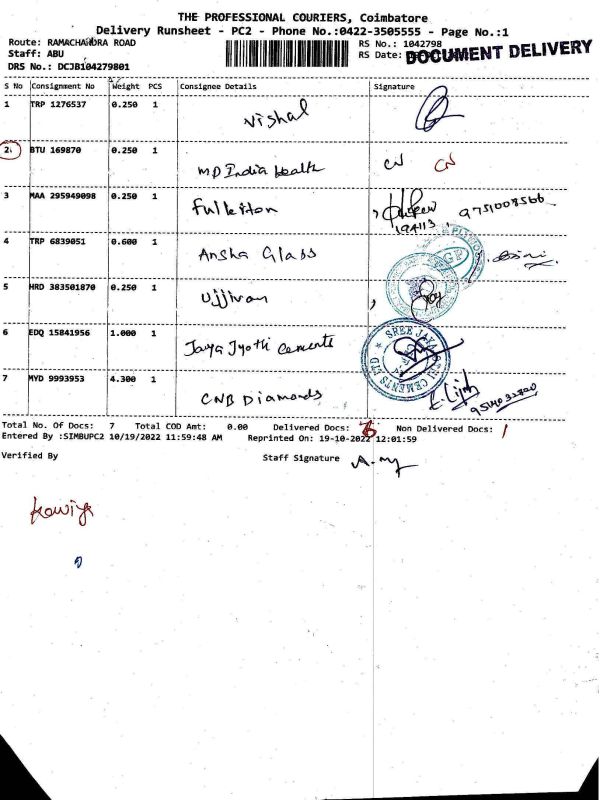 THE PROFESSIONAL COURIERS, Coimbatore
Delivery Runsheet - PC2 - Phone No.:0422-3505555 - Page No.:1
Route: RAMACHANDRA ROAD RS No.: 1042798
Staff: ABU RS Date: DOCUMENT DELIVERY
DRS No.: DCJB104279801
S No Consignment No Weight PCS Consignee Details Signature
1 TRP 1276537 0.250 1 Vishal
2 BTU 169870 0.250 1 MD India Health
3 MAA 295949098 0.250 1 Fullerton 9751008566
194113
4 TRP 6839051 0.600 1 Ansha Glass
5 HRD 383501870 0.250 1 Ujjivan
6 EDQ 15841956 1.000 1 Jaya Jyothi Cements
7 MYD 9993953 4.300 1 CNB Diamonds
Total No. Of Docs: 7 Total COD Amt: 0.00 Delivered Docs: Non Delivered Docs: 1
Entered By :SIMBUPC2 10/19/2022 11:59:48 AM Reprinted On: 19-10-2022 12:01:59
Verified By Staff Signature